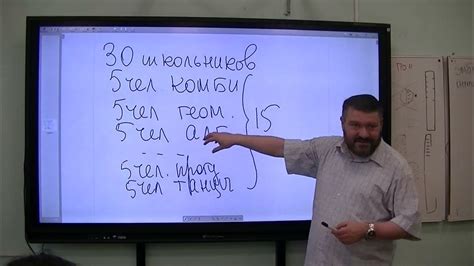 30 школьников
5 чел комби
5 чел геом. 15
5 чел алг
-- --
5 чел. прогу
5 чел танцы